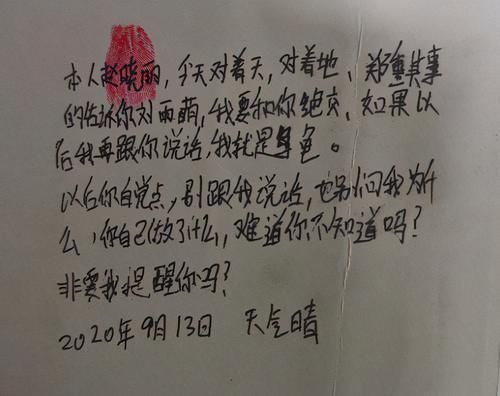 本人赵晓丽,今天对着天,对着地、郑重其事
的告诉你刘雨萌,我要和你绝交、如果以
后我再跟你说话,我就是龟。
以后你自觉点,别跟我说话,也别问我为什
么,你自己做了什么,难道你不知道吗?
非要我提醒你吗?
2020年9月13日 天气晴